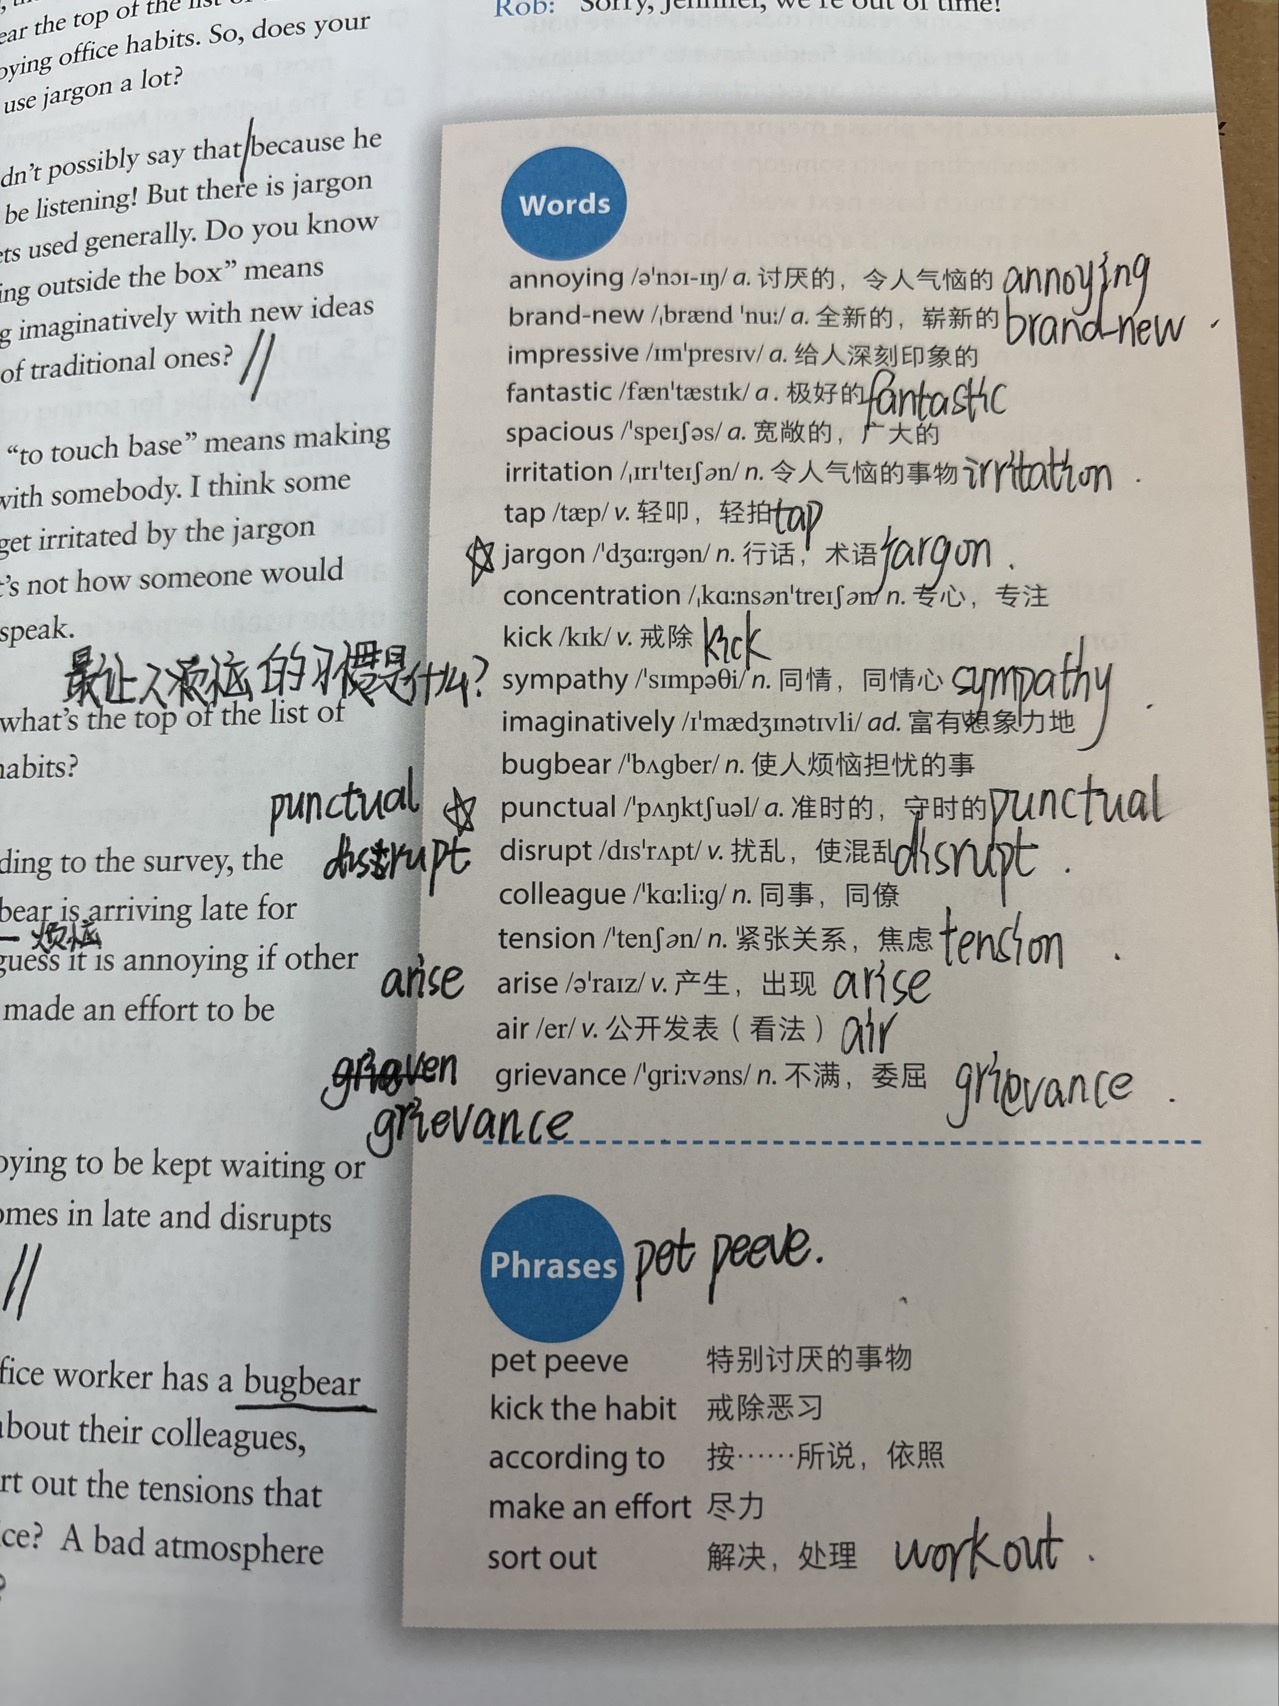 Rob: Sorry, Jennifer, we're out of time!
ear the top of the list of
oying office habits. So, does your
use jargon a lot?
dn't possibly say that because he
be listening! But there is jargon
ets used generally. Do you know
ing outside the box” means
g imaginatively with new ideas
of traditional ones?
“to touch base” means making
with somebody. I think some
get irritated by the jargon
t's not how someone would
speak.
最让人烦恼的习惯是什么?
what's the top of the list of
habits?
punctual
disrupt
ding to the survey, the
bear is arriving late for
烦恼
guess it is annoying if other
arise
made an effort to be
grieven
grievance
oying to be kept waiting or
omes in late and disrupts
fice worker has a bugbear
about their colleagues,
rt out the tensions that
ce? A bad atmosphere
?
Words
annoying /ə'nɔɪ-ɪŋ/ a. 讨厌的，令人气恼的 annoying
brand-new /ˌbrænd 'nuː/ a. 全新的，崭新的 brand-new
impressive /ɪm'presɪv/ a. 给人深刻印象的
fantastic /fæn'tæstɪk/ a. 极好的 fantastic
spacious /'speɪʃəs/ a. 宽敞的，广大的
irritation /ˌɪrɪ'teɪʃən/ n. 令人气恼的事物 irritation
tap /tæp/ v. 轻叩，轻拍 tap
☆ jargon /'dʒɑːrgən/ n. 行话，术语 jargon
concentration /ˌkɑːnsən'treɪʃən/ n. 专心，专注
kick /kɪk/ v. 戒除 kick
sympathy /'sɪmpəθi/ n. 同情，同情心 sympathy
imaginatively /ɪ'mædʒɪnətɪvli/ ad. 富有想象力地
bugbear /'bʌgber/ n. 使人烦恼担忧的事
☆ punctual /'pʌŋktʃuəl/ a. 准时的，守时的 punctual
disrupt /dɪs'rʌpt/ v. 扰乱，使混乱 disrupt
colleague /'kɑːliːg/ n. 同事，同僚
tension /'tenʃən/ n. 紧张关系，焦虑 tension
arise /ə'raɪz/ v. 产生，出现 arise
air /er/ v. 公开发表（看法）air
grievance /'griːvəns/ n. 不满，委屈 grievance
Phrases pet peeve.
pet peeve 特别讨厌的事物
kick the habit 戒除恶习
according to 按……所说，依照
make an effort 尽力
sort out 解决，处理 work out